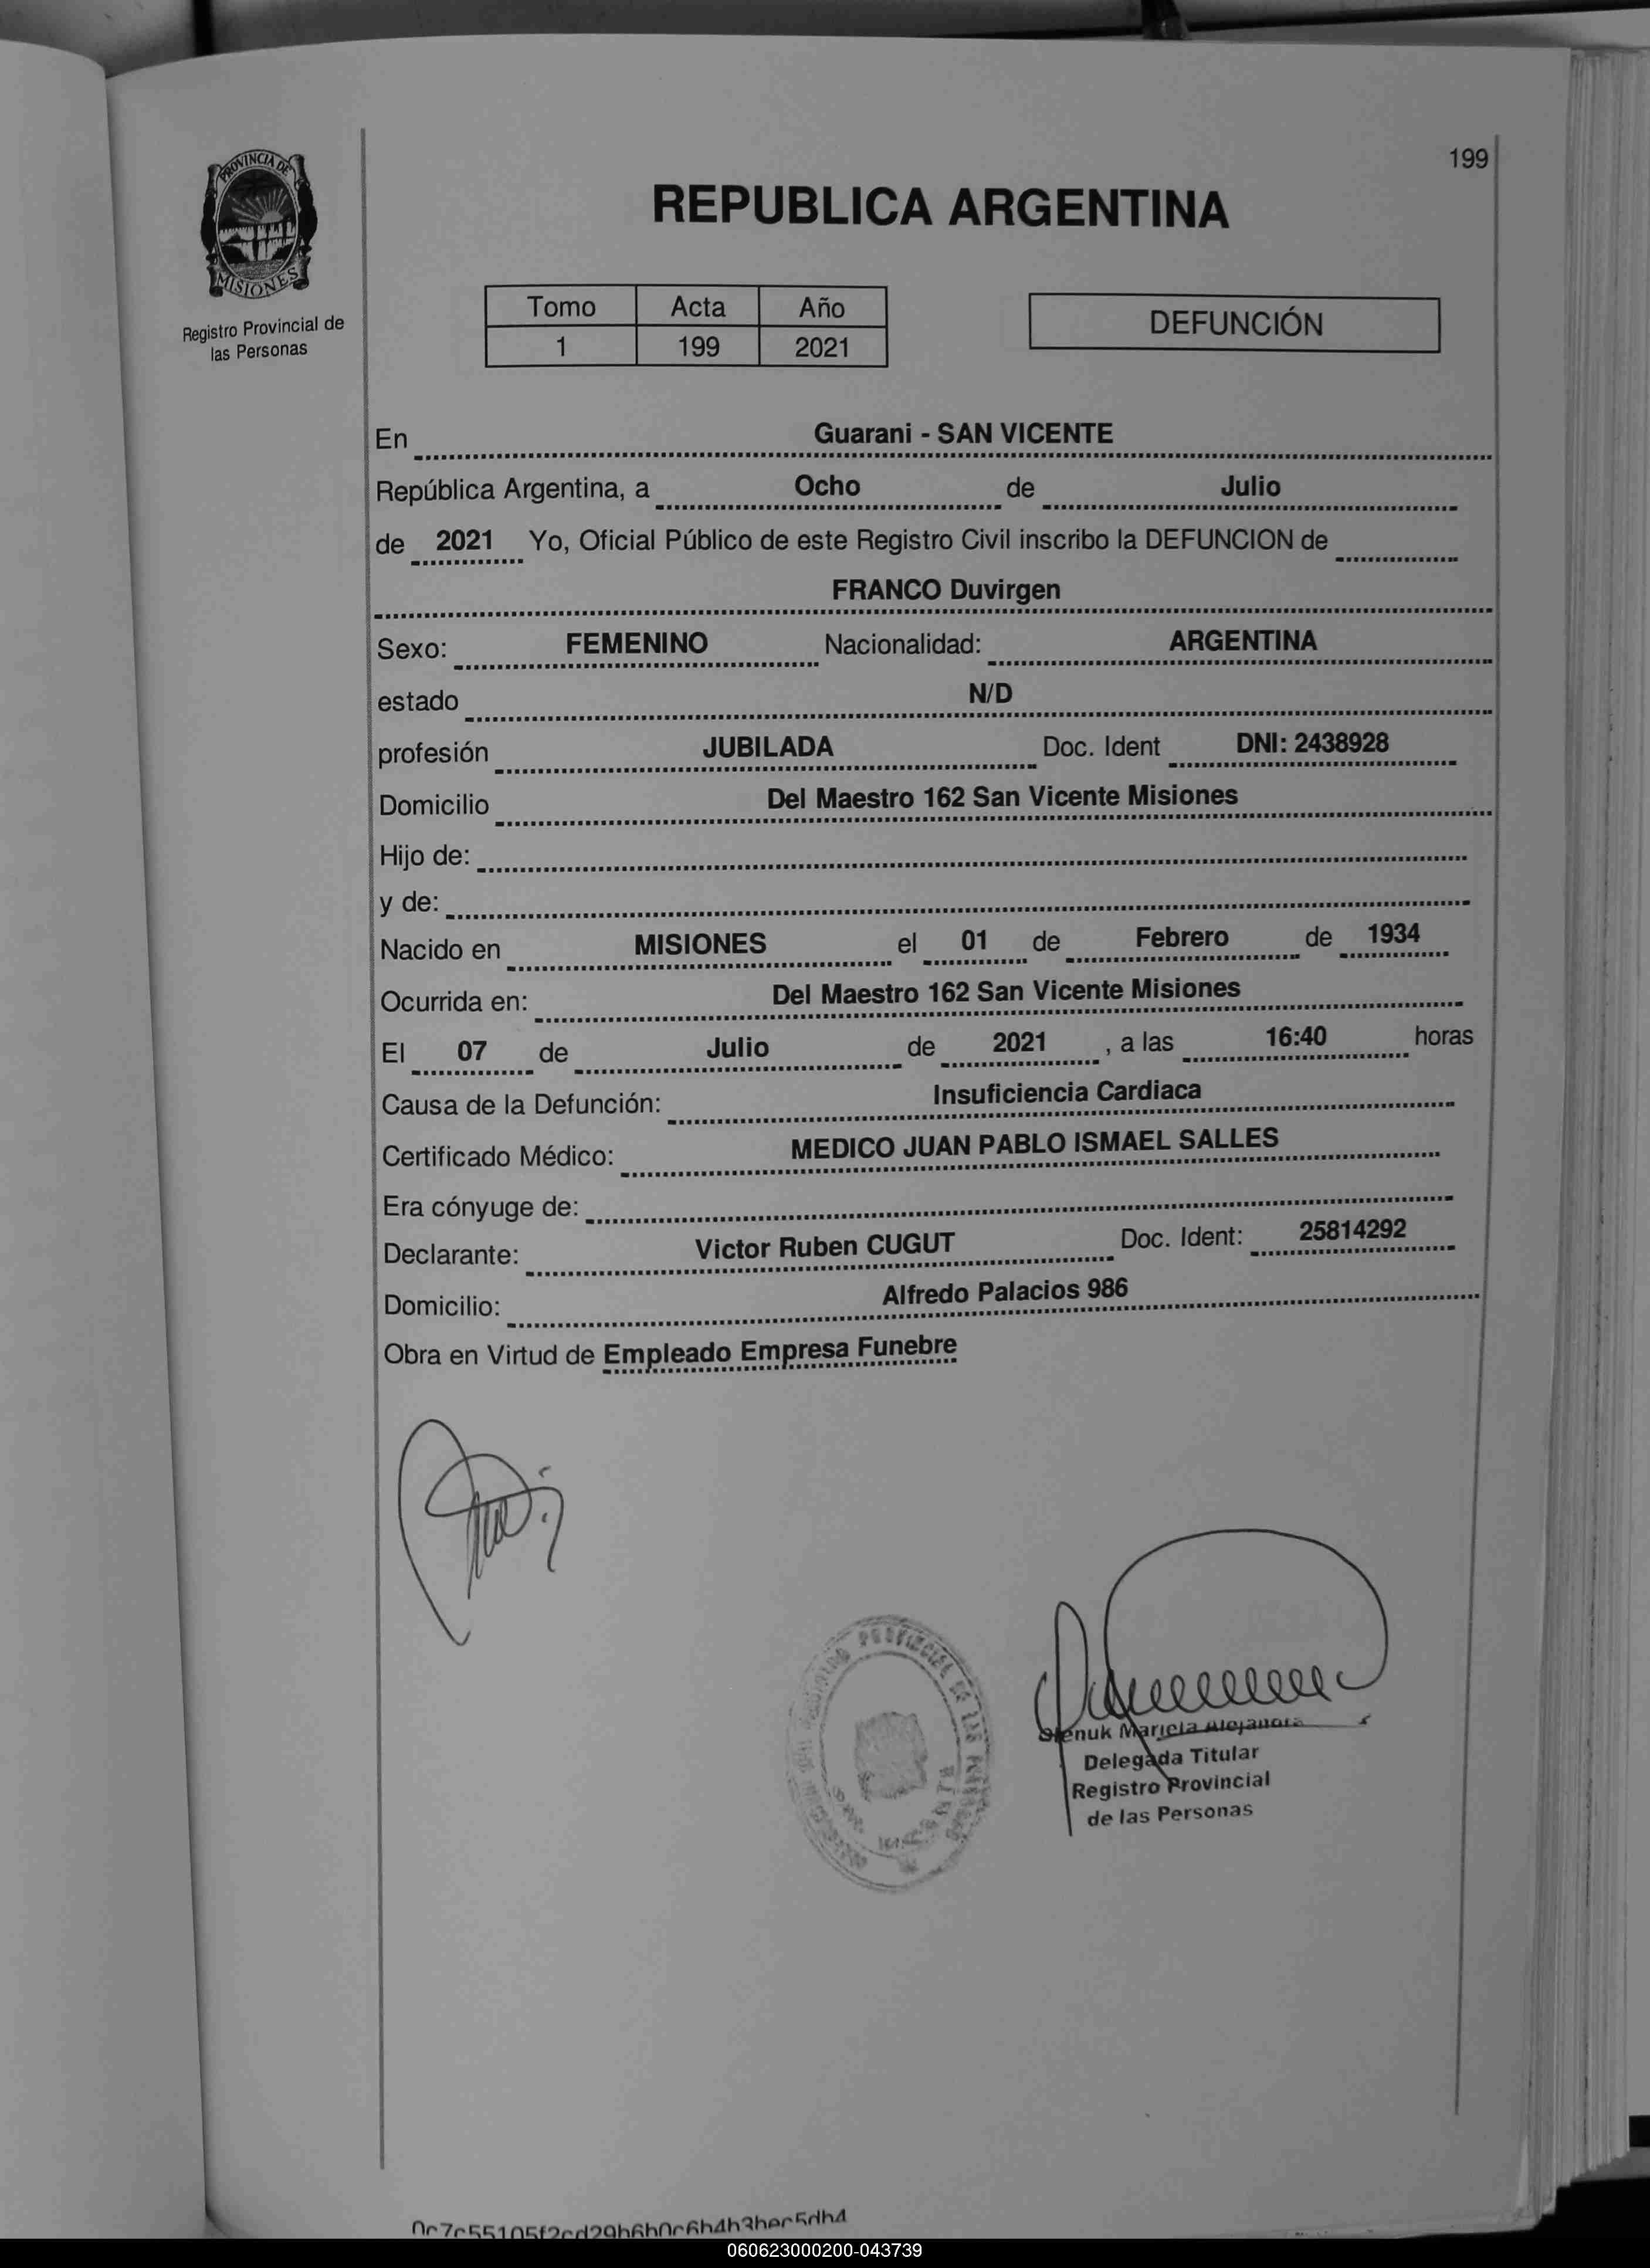 199
PROVINCIA DE
MISIONES
Registro Provincial de
las Personas
REPUBLICA ARGENTINA
Tomo Acta Año
1 199 2021
DEFUNCIÓN
En Guarani - SAN VICENTE
República Argentina, a Ocho de Julio
de 2021 Yo, Oficial Público de este Registro Civil inscribo la DEFUNCION de
FRANCO Duvirgen
Sexo: FEMENINO Nacionalidad: ARGENTINA
estado N/D
profesión JUBILADA Doc. Ident DNI: 2438928
Domicilio Del Maestro 162 San Vicente Misiones
Hijo de:
y de:
Nacido en MISIONES el 01 de Febrero de 1934
Ocurrida en: Del Maestro 162 San Vicente Misiones
El 07 de Julio de 2021 , a las 16:40 horas
Causa de la Defunción: Insuficiencia Cardiaca
Certificado Médico: MEDICO JUAN PABLO ISMAEL SALLES
Era cónyuge de:
Declarante: Victor Ruben CUGUT Doc. Ident: 25814292
Domicilio: Alfredo Palacios 986
Obra en Virtud de Empleado Empresa Funebre
PROVINCIAL DE LAS
Mariela Alejandra
Delegada Titular
Registro Provincial
de las Personas
060623000200-043739